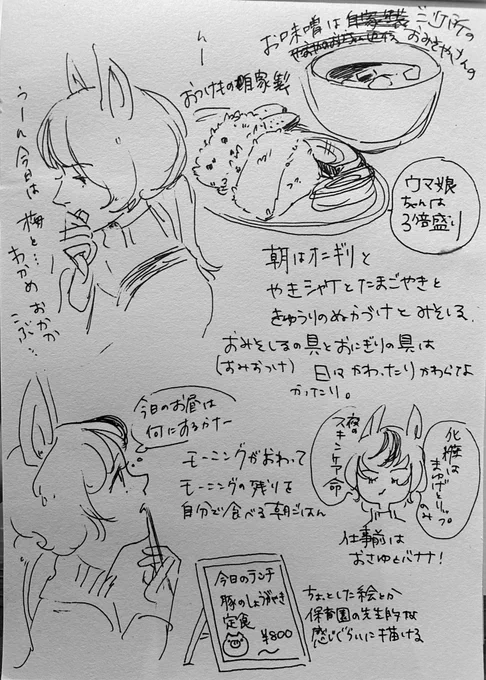 お味噌は
ご近所の
おみそやさんの
おつけもの自家製
んー
うーん今日は
梅と…
わかめ おかか
こぶ…
ウマ娘
ちゃんは
3倍盛り
朝はオニギリと
やきシャケとたまごやきと
きゅうりのぬかづけとみそしる.
おみそしるの具とおにぎりの具は
(おみおつけ) 日によ かわったりかわらなかったり。
今日のお昼は
何にあるかナー
モーニングがおわって
モーニングの残りを
自分で食べる朝ごはん
化粧は
まゆげとリップ
のみ
夜の
スキンケア命
仕事前は
おさゆとバナナ!
今日のランチ
豚のしょうがやき
定食
¥800
〜
ちょっとした絵とか
保育園の先生的な
感じぐらいに描ける